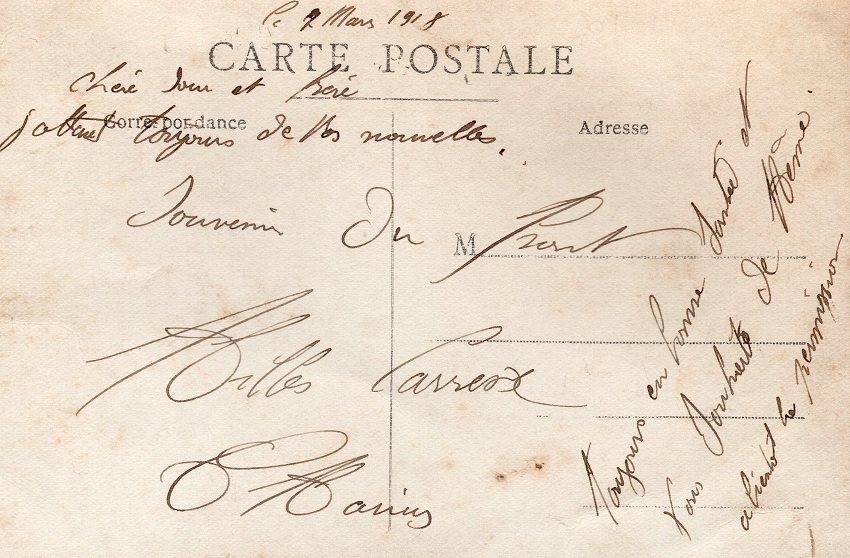 le 2 Mars 1918
CARTE POSTALE
Chère Sœur et Frère
Correspondance
Adresse
j'attend toujours de Vos nouvelles,
Souvenir Du Front
M
Milles Caresse
Marius
Toujours en bonne Santée et
Vous Souhaite de Même.
a bientot la permission